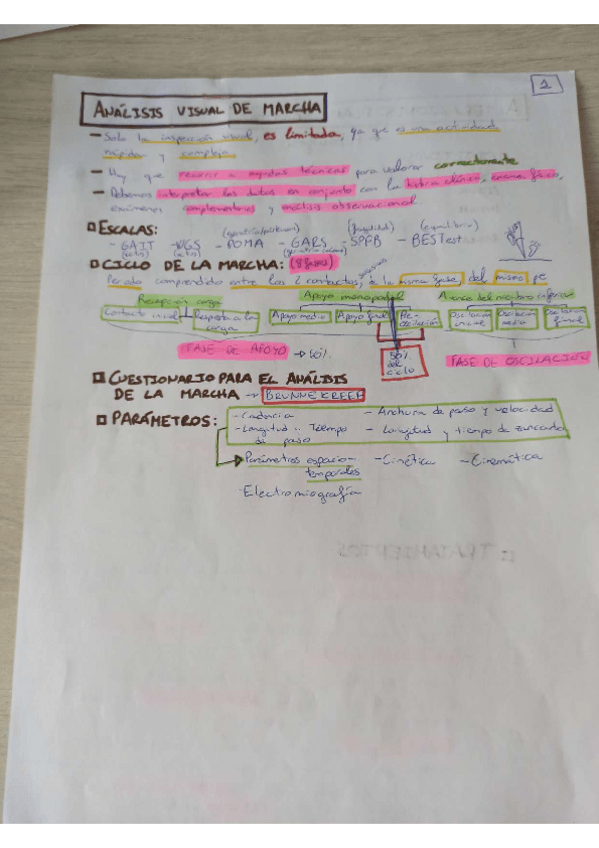 1
ANÁLISIS VISUAL DE MARCHA
- Solo la inspección visual, es limitada, ya que es una actividad
rápida y compleja
- Hay que recurrir a ayudas técnicas para valorar correctamente
- Debemos interpretar los datos en conjunto con la historia clínica, examen físico,
exámenes complementarios y análisis observacional
ESCALAS:
(fragilidad) (equilibrio)
- GAIT - WGS - POMA - GARS - SPPB - BESTest
(ictus) (ictus)
CICLO DE LA MARCHA: (8 fases)
Periodo comprendido entre los 2 contactos, de la misma fase, del mismo pie
Recepción carga Apoyo monopodal Avance del miembro inferior
Contacto inicial Respuesta a la carga Apoyo medio Apoyo final Pre-oscilación Oscilación inicial Oscilación media Oscilación final
FASE DE APOYO → 50% 50% del ciclo FASE DE OSCILACIÓN
CUESTIONARIO PARA EL ANÁLISIS
DE LA MARCHA → BRUNNEKREEF
PARÁMETROS:
- Cadencia - Anchura de paso y velocidad
- Longitud Tiempo de paso - Longitud y tiempo de zancada
Parámetros espacio-temporales - Cinética - Cinemática
Electromiografía